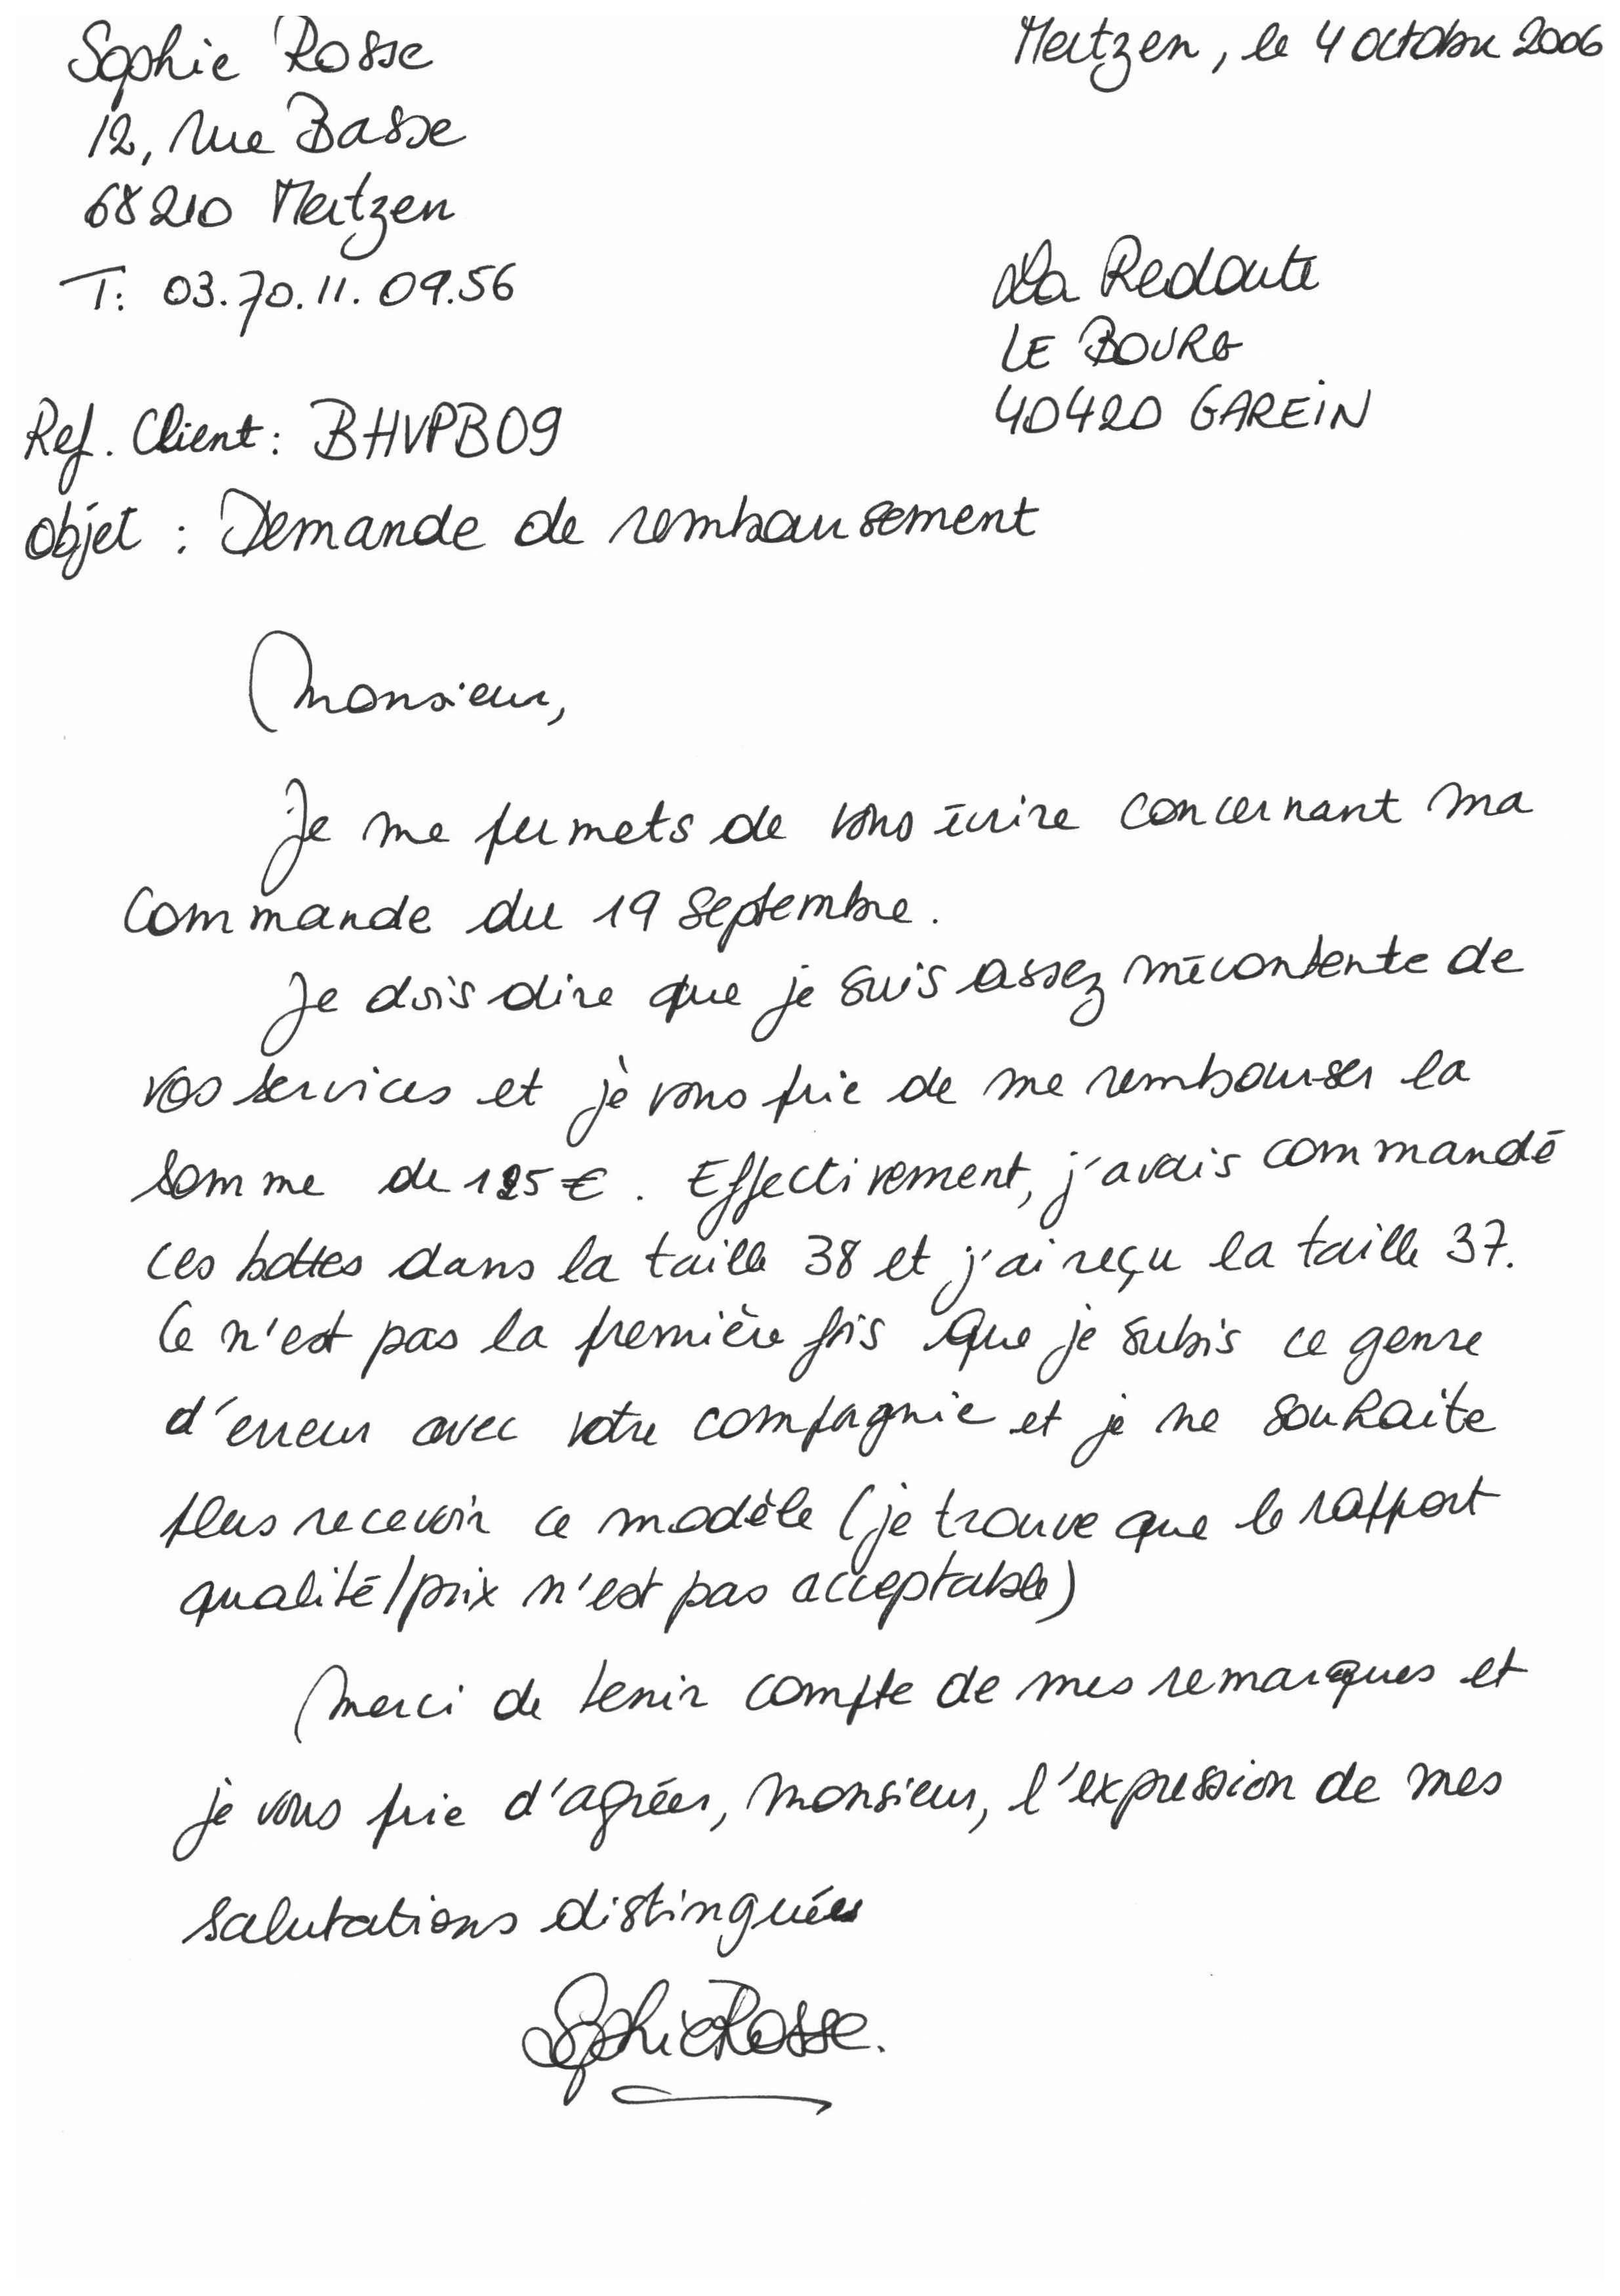 Sophie Rosse
Mertzen, le 4 octobre 2006
12, rue Basse
68210 Mertzen
T: 03.70.11.09.56
La Redoute
LE BOURG
40420 GAREIN
Ref. Client : BHVPB09
Objet : Demande de remboursement
Monsieur,
Je me permets de vous écrire concernant ma
commande du 19 septembre.
Je dois dire que je suis assez mécontente de
vos services et je vous prie de me rembourser la
somme de 125 €. Effectivement, j'avais commandé
ces bottes dans la taille 38 et j'ai reçu la taille 37.
Ce n'est pas la première fois que je subis ce genre
d'erreur avec votre compagnie et je ne souhaite
plus recevoir ce modèle (je trouve que le rapport
qualité/prix n'est pas acceptable)
Merci de tenir compte de mes remarques et
je vous prie d'agréer, Monsieur, l'expression de mes
salutations distinguées
Sophie Rosse.